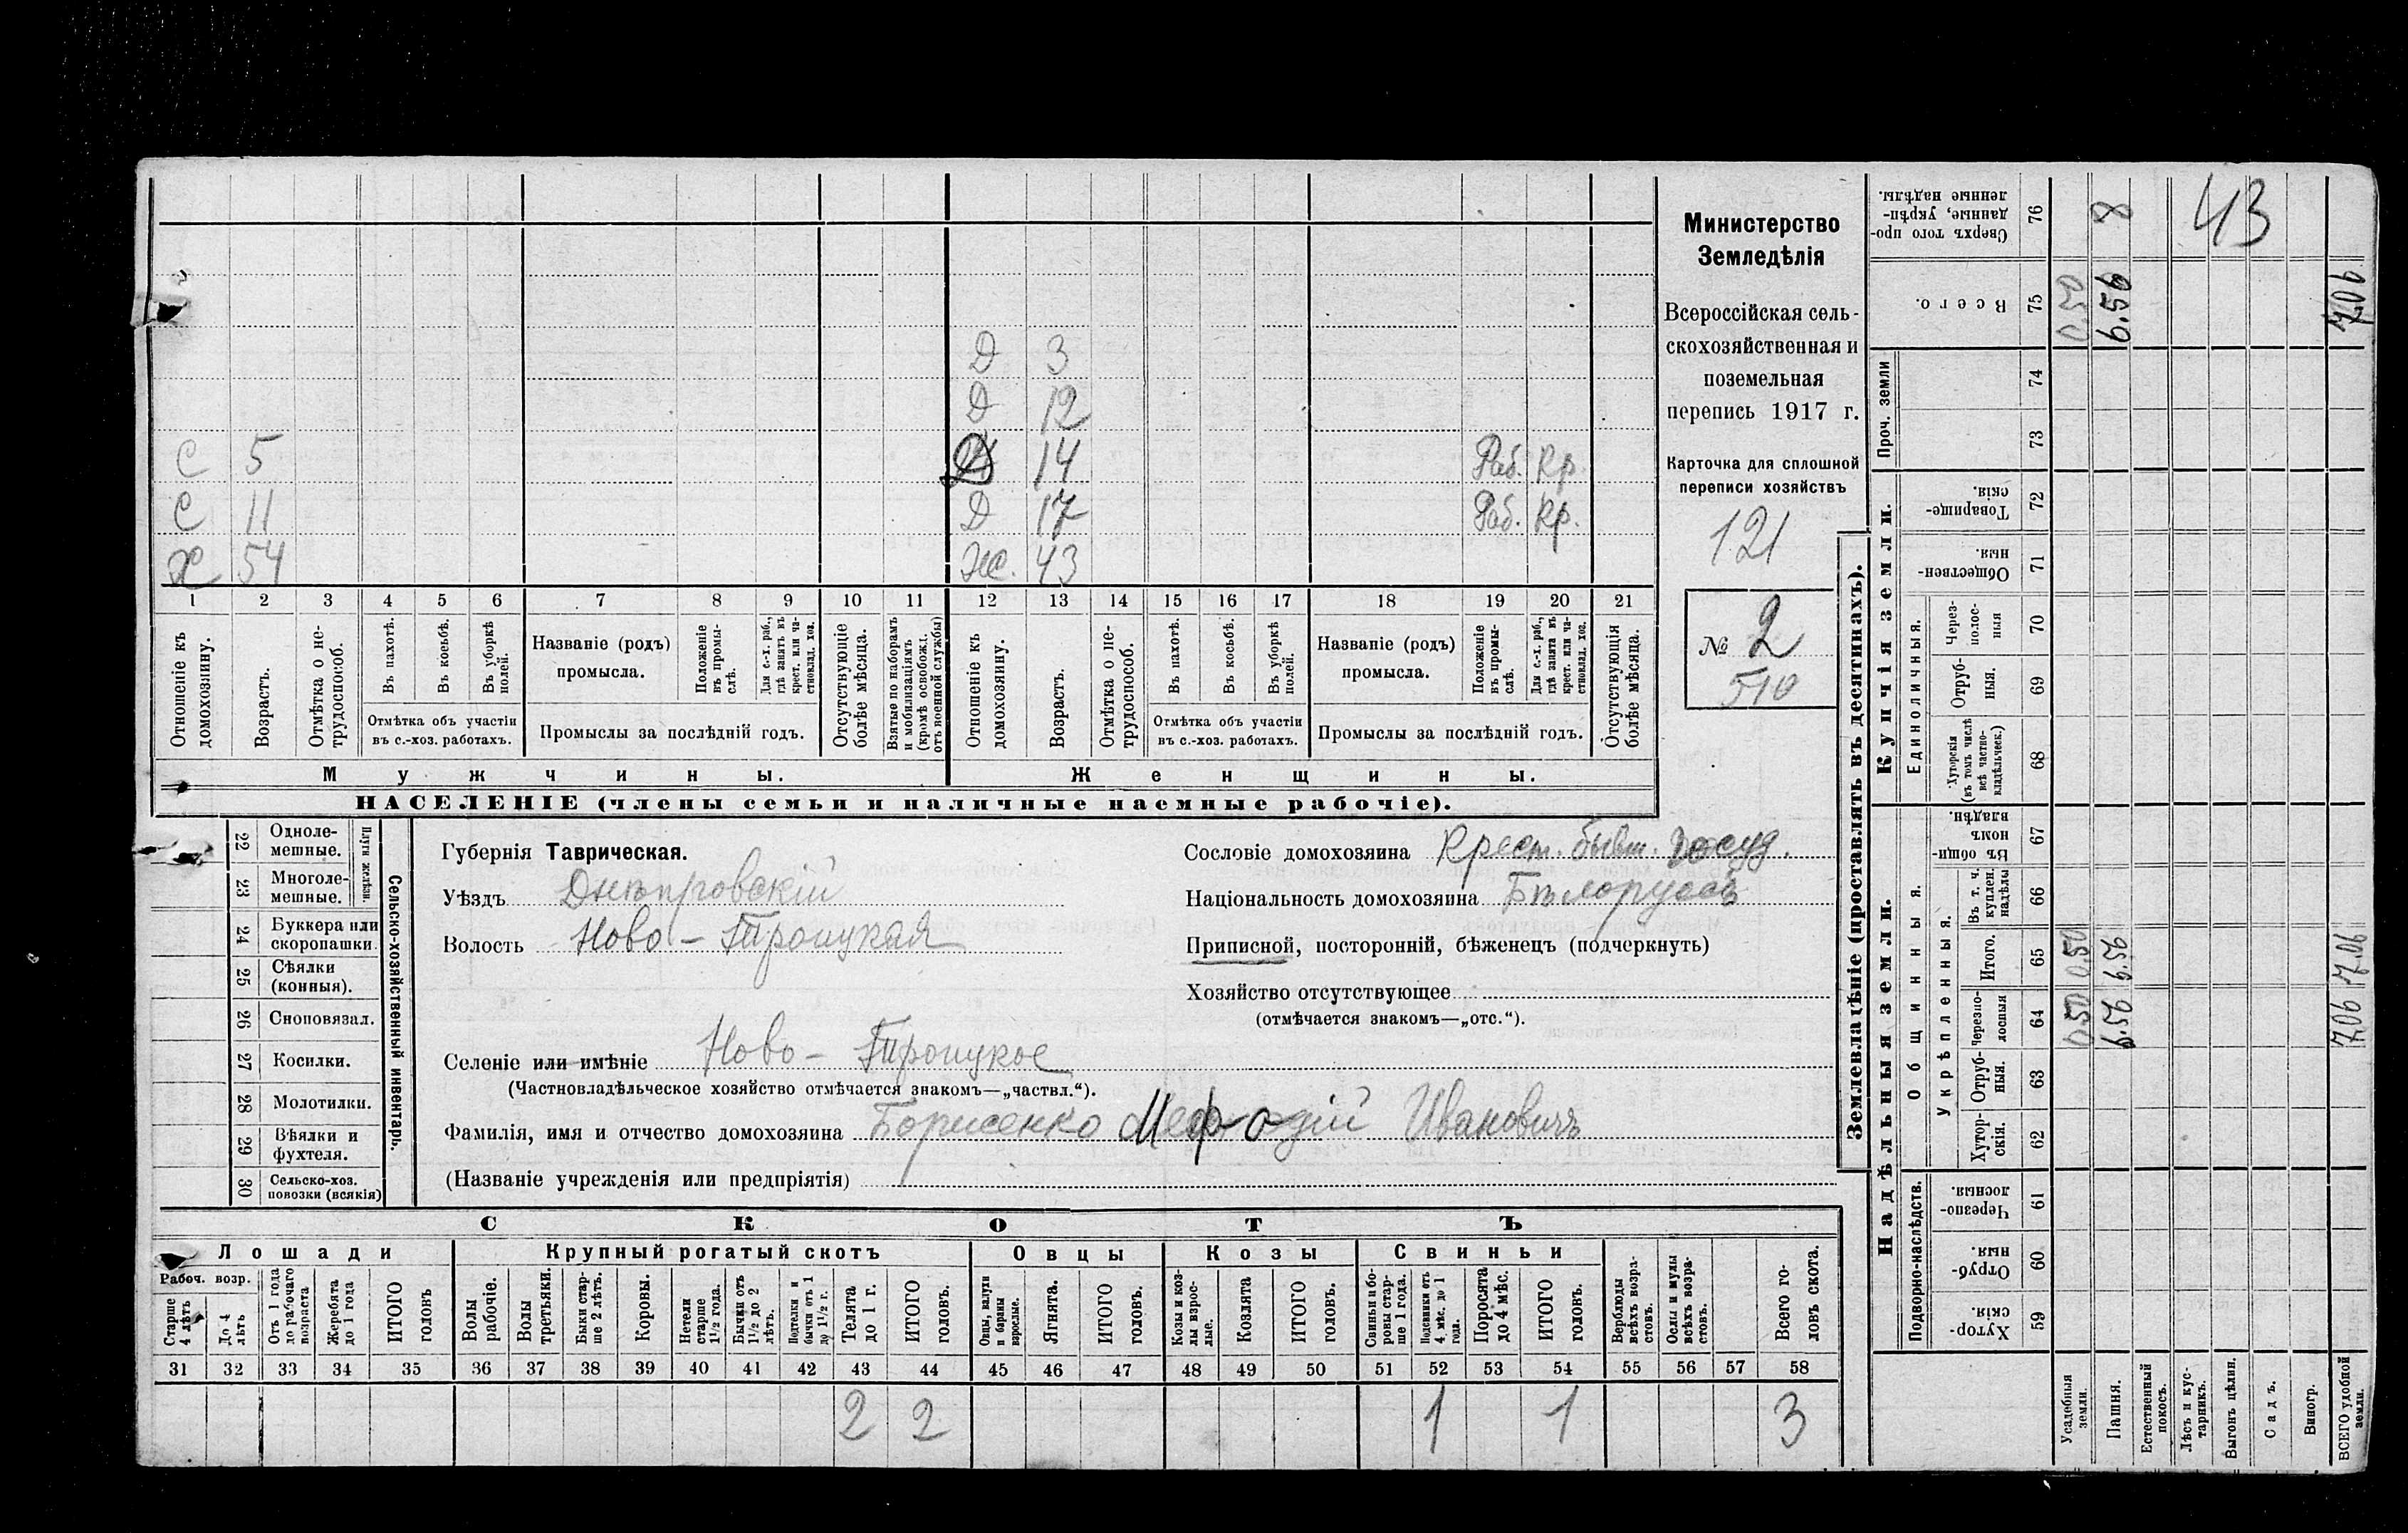 Д 3
Д 12
С 5 Д 14 Раб. Кр.
С 11 Д 17 Раб. Кр.
Х 54 Ж. 43
1 2 3 4 5 6 7 8 9 10 11 12 13 14 15 16 17 18 19 20 21
Отношеніе къ домохозяину.
Возрастъ.
Отмѣтка о не-
трудоспособ.
Въ пахотѣ.
Въ косьбѣ.
Въ уборкѣ
полей.
Отмѣтка объ участіи
въ с.-хоз. работахъ.
Названіе (родъ)
промысла.
Положеніе
въ промы-
слѣ.
Для с.-х. раб.,
гдѣ занятъ въ
крест. или ча-
стновлад. хоз.
Промыслы за послѣдній годъ.
Отсутствующіе
болѣе мѣсяца.
Взятые по наборамъ
и мобилизаціямъ
(кромѣ освобожд.
отъ военной службы)
Отношеніе къ
домохозяину.
Возрастъ.
Отмѣтка о не-
трудоспособ.
Въ пахотѣ.
Въ косьбѣ.
Въ уборкѣ
полей.
Отмѣтка объ участіи
въ с.-хоз. работахъ.
Названіе (родъ)
промысла.
Положеніе
въ промы-
слѣ.
Для с.-х. раб.,
гдѣ занята въ
крест. или ча-
стновлад. хоз.
Промыслы за послѣдній годъ.
Отсутствующія
болѣе мѣсяца.
Мужчины. Женщины.
НАСЕЛЕНІЕ (члены семьи и наличные наемные рабочіе).
Министерство
Земледѣлія
Всероссійская сель-
скохозяйственная и
поземельная
перепись 1917 г.
Карточка для сплошной
переписи хозяйствъ
121
№ 2
510
22 Одноле-
мешные.
23 Многоле-
мешные.
Плуги желѣзн.
24 Буккера или
скоропашки.
25 Сѣялки
(конныя).
26 Сноповязал.
27 Косилки.
28 Молотилки.
29 Вѣялки и
фухтеля.
30 Сельско-хоз.
повозки (всякія)
Сельско-хозяйственный инвентарь.
Губернія Таврическая.
Уѣздъ Днѣпровскій
Волость Ново-Троицкая
Селеніе или имѣніе Ново-Троицкое
(Частновладѣльческое хозяйство отмѣчается знакомъ—„частвл.“).
Фамилія, имя и отчество домохозяина Борисенко Мефодій Ивановичъ
(Названіе учрежденія или предпріятія)
Сословіе домохозяина Крест. бывш. госуд.
Національность домохозяина Бѣлоруссъ
Приписной, посторонній, бѣженецъ (подчеркнуть)
Хозяйство отсутствующее
(отмѣчается знакомъ—„отс.“).
СКОТЪ
Лошади Крупный рогатый скотъ Овцы Козы Свиньи
Рабоч. возр.
Старше
4 лѣтъ
До 4
лѣтъ
Отъ 1 года
до рабочаго
возраста
Жеребята
до 1 года
ИТОГО
головъ
Волы
рабочіе.
Волы
третьяки.
Быки стар-
ше 2 лѣтъ.
Коровы.
Нетели
старше
1½ года.
Бычки отъ
1½ до 2
лѣтъ.
Подтелки и
бычки отъ 1
до 1½ г.
Телята
до 1 г.
ИТОГО
головъ.
Овцы, валухи
и бараны
взрослые.
Ягнята.
ИТОГО
головъ.
Козы и коз-
лы взрос-
лые.
Козлята
ИТОГО
головъ.
Свиньи и бо-
ровы стар-
ше 1 года.
Подсвинки отъ
4 мѣс. до 1
года.
Поросята
до 4 мѣс.
ИТОГО
головъ.
Верблюды
всѣхъ возра-
стовъ.
Ослы и мулы
всѣхъ возра-
стовъ.
Всего го-
ловъ скота.
31 32 33 34 35 36 37 38 39 40 41 42 43 44 45 46 47 48 49 50 51 52 53 54 55 56 57 58
2 2 1 1 3
Землевладѣніе (проставлять въ десятинахъ).
Надѣльныя земли. Купчія земли. Проч. земли
Подворно-наслѣдств.
Общинныя.
Укрѣпленныя.
Единоличныя.
Хутор-
скія. 59
Отруб-
ныя. 60
Черезпо-
лосныя. 61
Хутор-
скія. 62
Отруб-
ныя. 63
Черезпо-
лосныя 64
Итого. 65
Въ т. ч.
куплен.
надѣлы 66
Въ общин-
номъ
владѣн. 67
Хуторскія
(въ томъ числѣ
всѣ частно-
владѣльческ.) 68
Отруб-
ныя. 69
Через-
полос-
ныя 70
Обществен-
ныя. 71
Товарище-
скія. 72
73
74
Всего. 75
Сверхъ того про-
данные, укрѣп-
ленные надѣлы. 76
Усадебныя
земли. 0,50 0,50 0,50
Пашня. 6,56 6,56 6,56 8
Естественный
покосъ.
Лѣсъ и кус-
тарникъ.
Выгонъ цѣлин.
Садъ.
Виногр.
ВСЕГО удобной
земли. 7,06 7,06 7,06
43